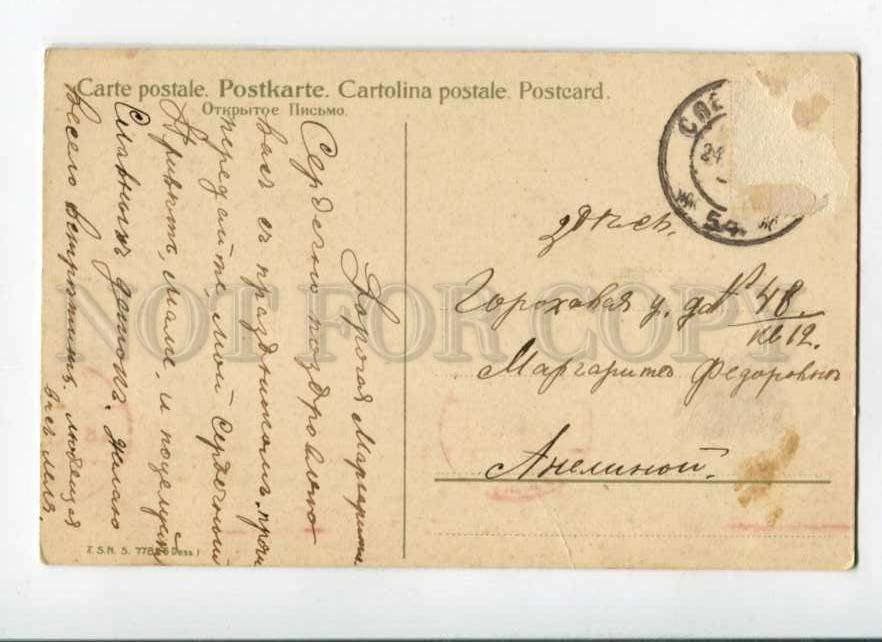 Carte postale. Postkarte. Cartolina postale. Postcard.
Открытое Письмо.
Дорогая Маргарита
Сердечно поздровляю
васъ съ праздникомъ, прошу
передайте, мой Сердечный
Привѣтъ, маме, и поцелуйте
деток. Желаю
Весело встретить. любящая
васъ Леля.
здѣсь.
Гороховая у. д № 48.
кв 12.
Маргарите Федоровне
Анелиной.
54
NOT FOR COPY